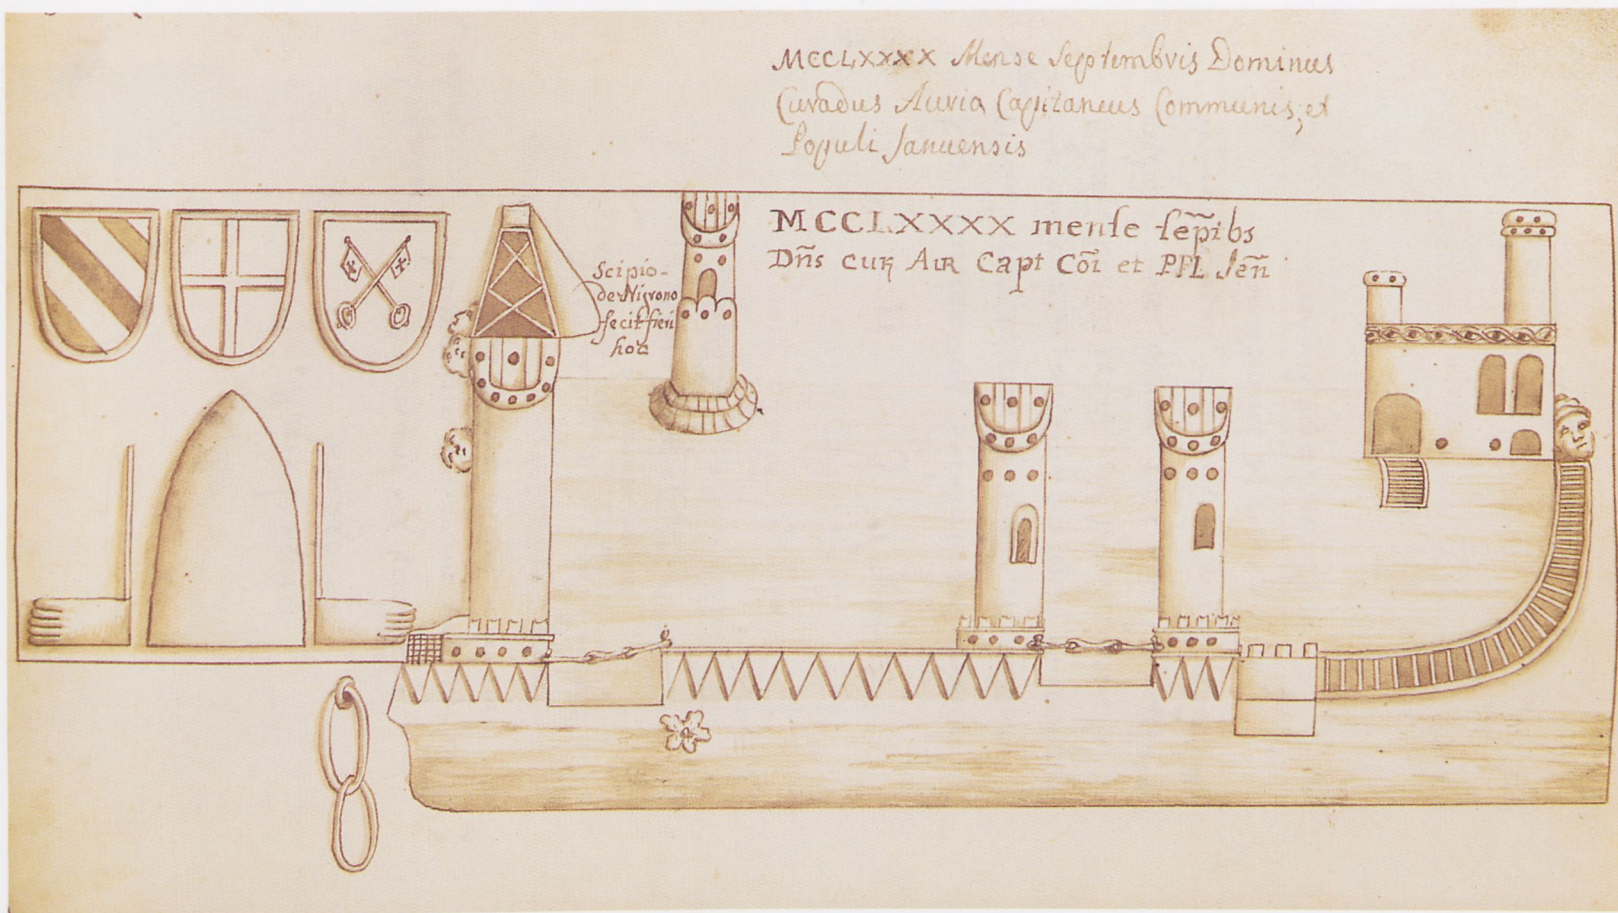 MCCLXXXX Mense Septembris Dominus
Curadus Auria Capitaneus Communis, et
Populi Januensis
MCCLXXXX mense sep̃tbs
Dñs cuʀ AuR Capt Cõi et PPL Jeñ
Scipio-
de Nigrono
fecit fieri
hoc